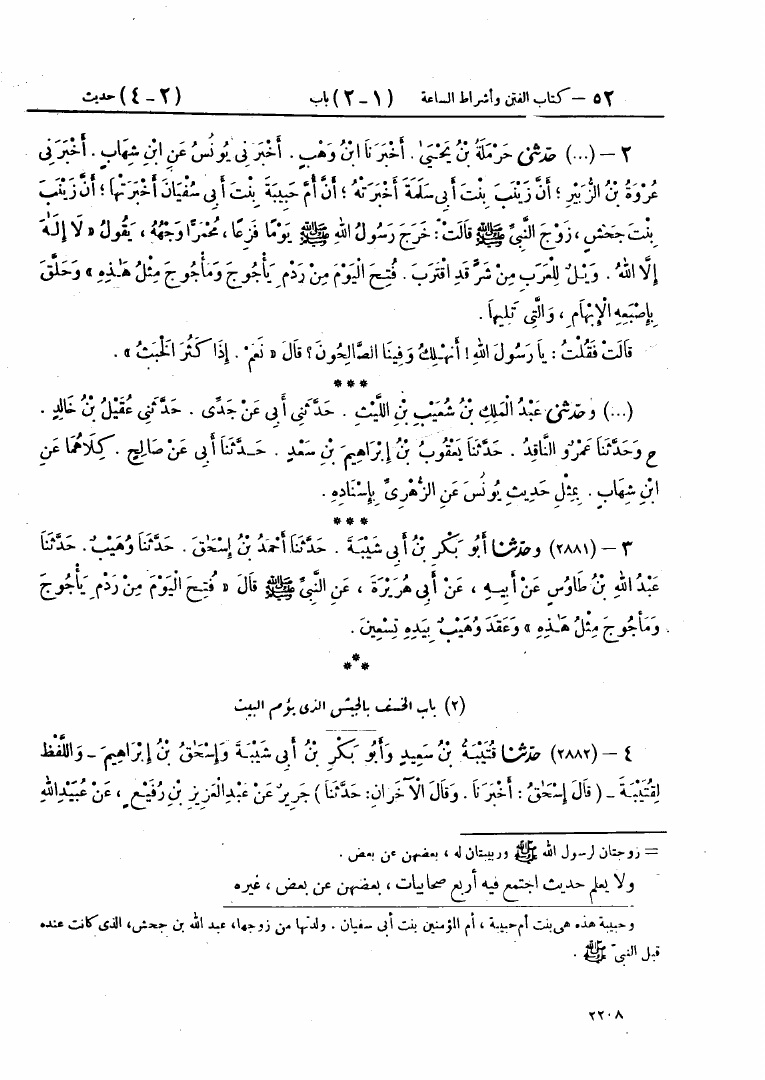 ٥٢ – كتاب الفتن وأشراط الساعة (١ – ٢) باب (٢ – ٤) حديث
٢ – (...) حَدَّثَنِي حَرْمَلَةُ بْنُ يَحْيَىٰ. أَخْبَرَنَا ابْنُ وَهْبٍ. أَخْبَرَنِي يُونُسُ عَنِ ابْنِ شِهَابٍ. أَخْبَرَنِي
عُرْوَةُ بْنُ الزُّبَيْرِ؛ أَنَّ زَيْنَبَ بِنْتَ أَبِي سَلَمَةَ أَخْبَرَتْهُ؛ أَنَّ أُمَّ حَبِيبَةَ بِنْتَ أَبِي سُفْيَانَ أَخْبَرَتْهَا؛ أَنَّ زَيْنَبَ
بِنْتَ جَحْشٍ، زَوْجَ النَّبِيِّ ﷺ قَالَتْ: خَرَجَ رَسُولُ اللهِ ﷺ يَوْمًا فَزِعًا، مُحْمَرًّا وَجْهُهُ، يَقُولُ «لَا إِلَٰهَ
إِلَّا اللهُ. وَيْلٌ لِلْعَرَبِ مِنْ شَرٍّ قَدِ اقْتَرَبَ. فُتِحَ الْيَوْمَ مِنْ رَدْمِ يَأْجُوجَ وَمَأْجُوجَ مِثْلُ هَٰذِهِ» وَحَلَّقَ
بِإِصْبَعِهِ الْإِبْهَامِ، وَالَّتِي تَلِيهَا.
قَالَتْ فَقُلْتُ: يَا رَسُولَ اللهِ! أَنَهْلِكُ وَفِينَا الصَّالِحُونَ؟ قَالَ «نَعَمْ. إِذَا كَثُرَ الْخَبَثُ».
***
(...) وحَدَّثَنِي عَبْدُ الْمَلِكِ بْنُ شُعَيْبِ بْنِ اللَّيْثِ. حَدَّثَنِي أَبِي عَنْ جَدِّي. حَدَّثَنِي عُقَيْلُ بْنُ خَالِدٍ.
ح وَحَدَّثَنَا عَمْرٌو النَّاقِدُ. حَدَّثَنَا يَعْقُوبُ بْنُ إِبْرَاهِيمَ بْنِ سَعْدٍ. حَدَّثَنَا أَبِي عَنْ صَالِحٍ. كِلَاهُمَا عَنِ
ابْنِ شِهَابٍ. بِمِثْلِ حَدِيثِ يُونُسَ عَنِ الزُّهْرِيِّ بِإِسْنَادِهِ.
***
٣ – (٢٨٨١) وحَدَّثَنَا أَبُو بَكْرِ بْنُ أَبِي شَيْبَةَ. حَدَّثَنَا أَحْمَدُ بْنُ إِسْحَٰقَ. حَدَّثَنَا وُهَيْبٌ. حَدَّثَنَا
عَبْدُ اللهِ بْنُ طَاوُسٍ عَنْ أَبِيهِ، عَنْ أَبِي هُرَيْرَةَ، عَنِ النَّبِيِّ ﷺ قَالَ «فُتِحَ الْيَوْمَ مِنْ رَدْمِ يَأْجُوجَ
وَمَأْجُوجَ مِثْلُ هَٰذِهِ» وَعَقَدَ وُهَيْبٌ بِيَدِهِ تِسْعِينَ.
***
(٢) باب الخسف بالجيش الذى يؤم البيت
٤ – (٢٨٨٢) حَدَّثَنَا قُتَيْبَةُ بْنُ سَعِيدٍ وَأَبُو بَكْرِ بْنُ أَبِي شَيْبَةَ وَإِسْحَٰقُ بْنُ إِبْرَاهِيمَ – وَاللَّفْظُ
لِقُتَيْبَةَ – (قَالَ إِسْحَٰقُ: أَخْبَرَنَا. وَقَالَ الْآخَرَانِ: حَدَّثَنَا) جَرِيرٌ عَنْ عَبْدِ الْعَزِيزِ بْنِ رُفَيْعٍ، عَنْ عُبَيْدِ اللهِ
= زوجتان لرسول الله ﷺ وربيبتان له، بعضهن عن بعض.
ولا يعلم حديث اجتمع فيه أربع صحابيات، بعضهن عن بعض، غيره
وحبيبة هذه هى بنت أم حبيبة، أم المؤمنين بنت أبى سفيان. ولدتها من زوجها، عبد الله بن جحش، الذى كانت عنده
قبل النبىّ ﷺ.
٢٢٠٨